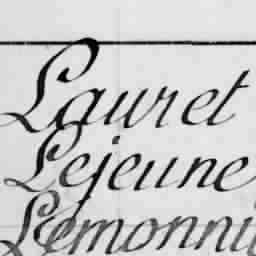 Lauret
Lejeune
Lemonni